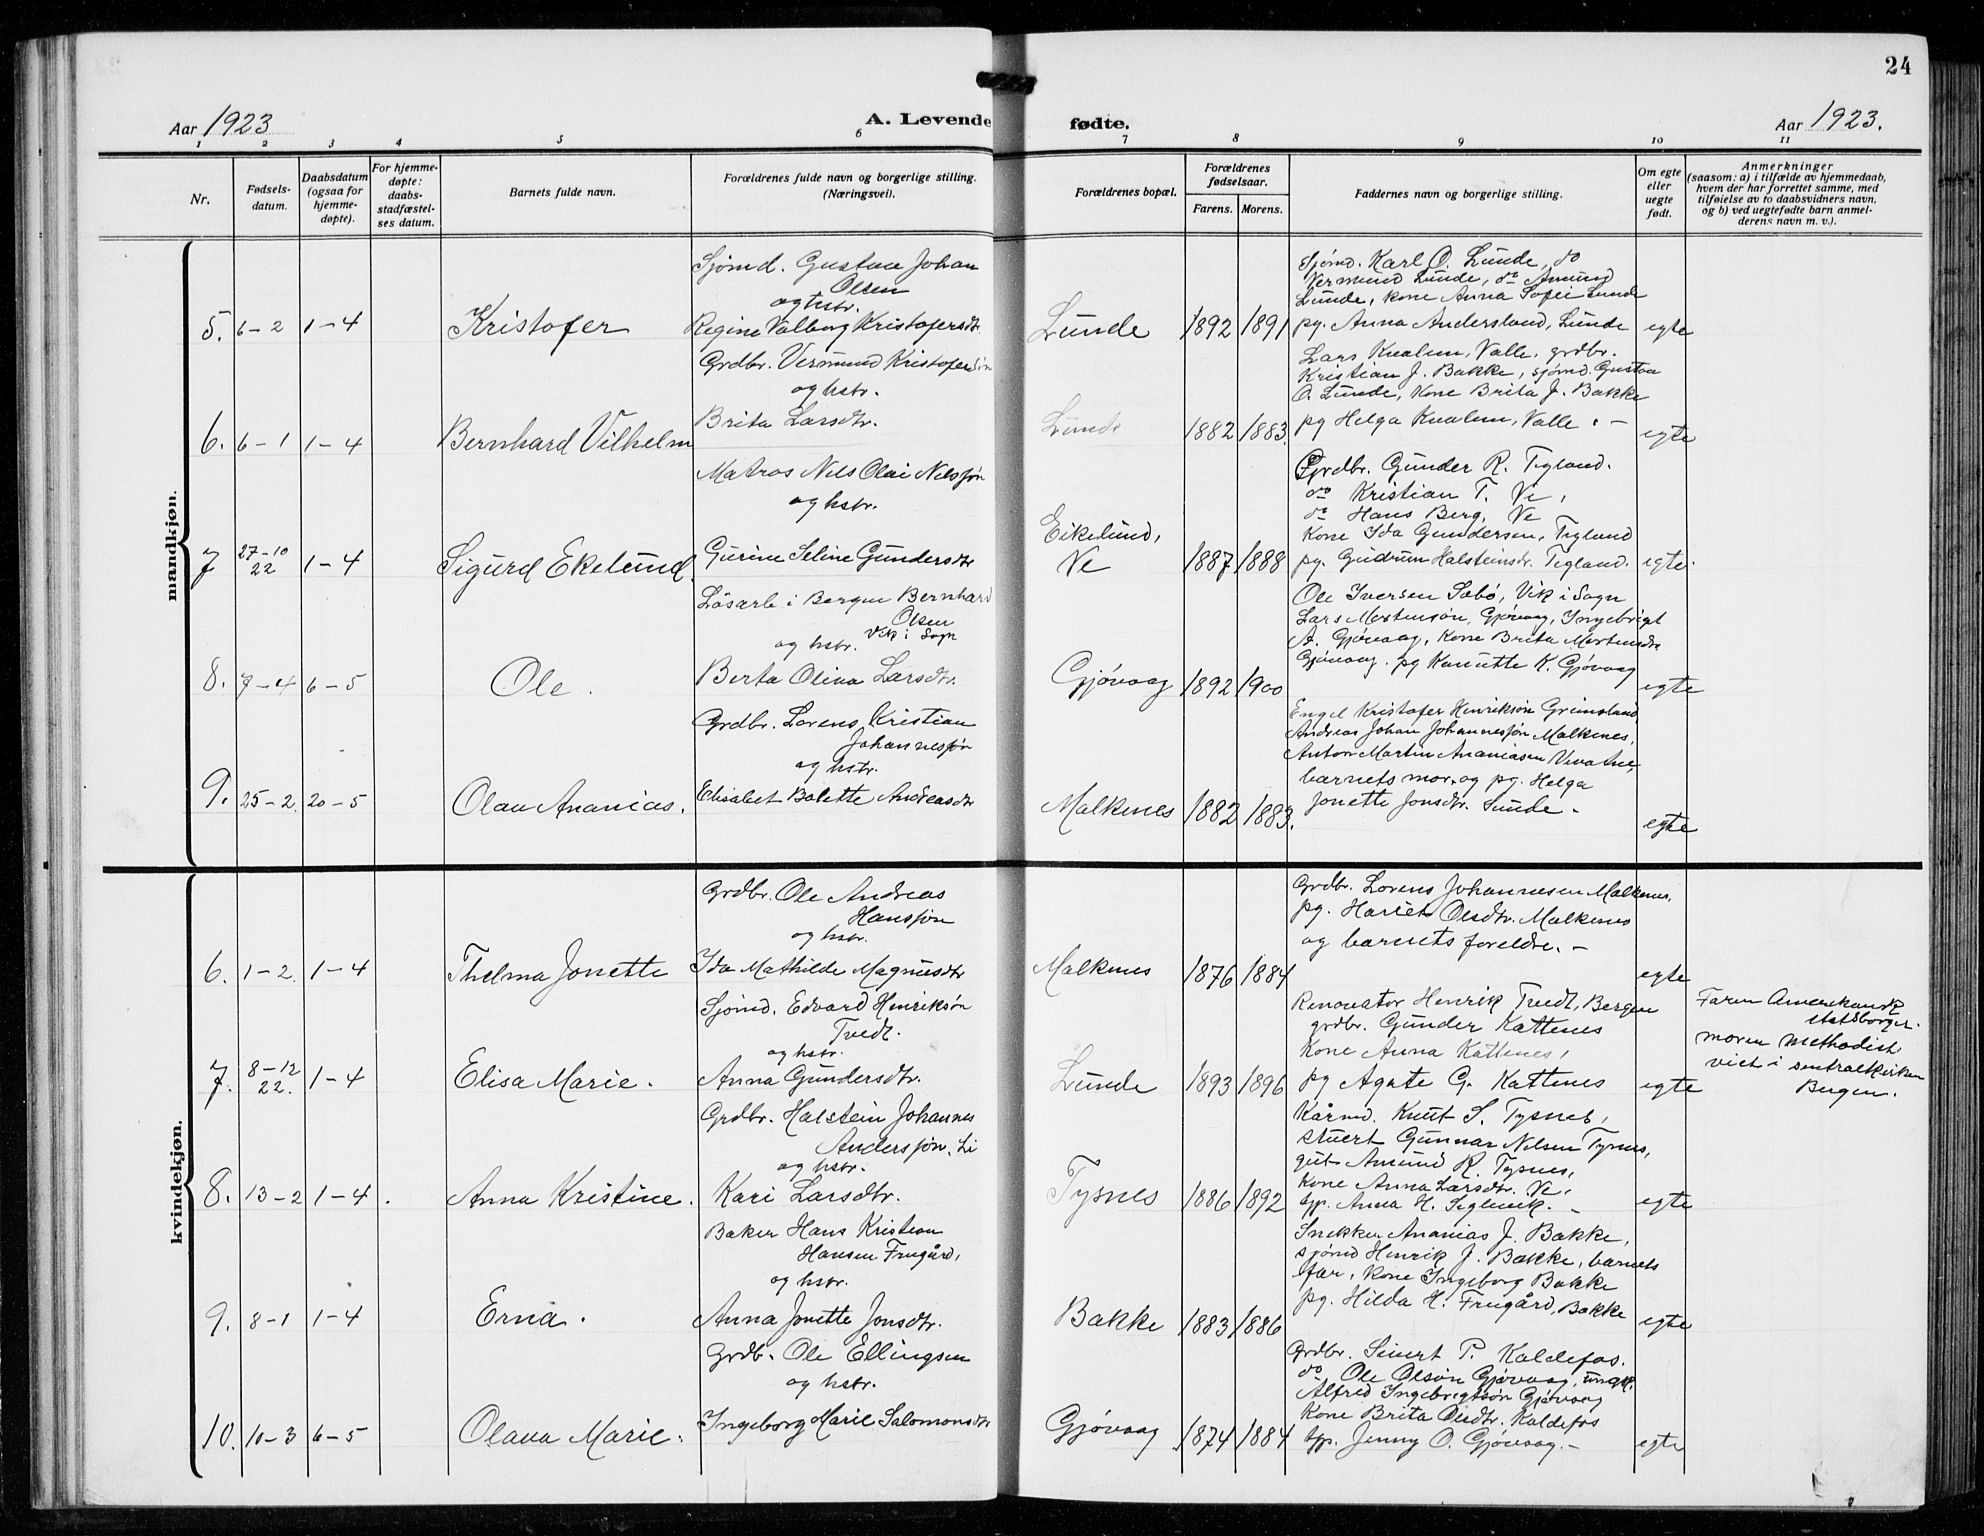 24
Aar 1923
A. Levende fødte.
Aar 1923.
1 2 3 4 5 6 7 8 9 10 11
Nr.
Fødsels-
datum.
Daabsdatum
(ogsaa for
hjemme-
døpte).
For hjemme-
døpte:
daabs-
stadfæstel-
ses datum.
Barnets fulde navn.
Forældrenes fulde navn og borgerlige stilling.
(Næringsvei).
Forældrenes bopæl.
Forældrenes
fødselsaar.
Farens. Morens.
Faddernes navn og borgerlige stilling.
Om egte
eller
uegte
født.
Anmerkninger
(saasom: a) i tilfælde av hjemmedaab,
hvem der har forrettet samme, med
tilføielse av to daabsvidners navn,
og b) ved uegtefødte barn anmel-
derens navn m. v.).
mandkjøn.
5. 6-2 1-4 Kristofer
Sjömd. Gustav Johan
Olsen
og hstr.
Regine Valborg Kristofersdtr.
Lunde 1892 1891
Sjömd. Karl O. Lunde, do
Vermund Lunde, do Amund
Lunde, kone Anna Sofie Lunde
pg. Anna Andersland, Lunde
egte
6. 6-1 1-4 Bernhard Vilhelm
Grdbr. Vermund Kristofersön
og hstr.
Brita Larsdtr.
Lunde 1882 1883.
Lars Kvalem, Valle, grdbr.
Kristian J. Bakke, sjömd. Gustav
O. Lunde, Kone Brita J. Bakke
pg Helga Kvalem, Valle. -
egte
7 27-10 22 1-4 Sigurd Ekelund
Matros Nils Olai Nilssön
og hstr.
Gurine Seline Gundersdtr
Eikelund,
Ve
1887 1888
Grdbr. Gunder R. Tegland.
do Kristian T. Ve,
do Hans Berg, Ve
Kone Ida Gundersen, Tegland
pg. Gudrun Halsteinsdr. Tegland.
egte.
8. 7-4 6-5 Ole.
Lösarb i Bergen Bernhard
Olsen
og hstr. Vik i Sogn
Berta Oliva Larsdtr.
Gjövaag 1892 1900
Ole Iversen Säbö, Vik i Sogn
Lars Mortensön, Gjövaag, Ingebrigt
A. Gjövaag, Kone Brita Mortensdtr
Gjövaag. pg Kanutte K. Gjövaag
egte
9. 25-2. 20-5 Olav Ananias.
Grdbr. Lorens Kristian
Johannessön
og hstr.
Elisabet Bolette Andreasdtr
Malkenes 1882 1883.
Engel Kristofer Henriksön Grimsland,
Andreas Johan Johannessön Malkenes,
Anton Martin Ananiasen
barnets mor, og pg. Helga
Jonette Jonsdtr. Lunde -
egte
kvindekjøn.
6. 1-2. 1-4 Thelma Jonette
Grdbr. Ole Andreas
Hanssön
og hstr.
Ida Mathilde Magnusdtr
Malkenes 1876 1884
Grdbr. Lorens Johannesen Malkenes,
pg. Hariet Olsdtr. Malkenes
og barnets foreldre. -
egte
7. 8-12 22. 1-4 Elisa Marie.
Sjömd. Edvard Henriksön
Tvedt.
og hstr.
Anna Gundersdtr.
Lunde 1893 1896
Renovator Henrik Tvedt, Bergen
grdbr. Gunder Kattenes
Kone Anna Kattenes,
pg Agate G. Kattenes
egte
Faren Amerikansk
statsborger.
moren methodist
viet i sentralkirken
Bergen.
8. 13-2 1-4. Anna Kristine.
Grdbr. Halstein Johannes
Anderssön, Li
og hstr.
Kari Larsdtr.
Tysnes 1886 1892
Kårmd. Knut S. Tysnes,
stuert Gunnar Nilsen Tysnes,
gut Amund R. Tysnes,
Kone Anna Larsdtr. Ve,
pp. Anna H. -
egte
9. 8-1 1-4 Erna.
Baker Hans Kristian
Hansen Frugård,
og hstr.
Anna Jonette Jonsdtr.
Bakke 1883 1886
Snekker Ananias J. Bakke,
sjömd Henrik J. Bakke, barnets
far, Kone Ingeborg Bakke
pg. Hilda H. Frugård, Bakke
egte
10. 10-3 6-5 Olava Marie.
Grdb. Ole Ellingsen
og hstr.
Ingeborg Marie Salomonsdtr
Gjövaag 1874 1884
Grdbr. Sivert P. Koldefos.
do Ole Olsön Gjövaag, ungk.
Alfred Ingebrigtsön Gjövaag
Kone Brita Olsdtr. Koldefos
pp. Jenny O. Gjövaag. -
egte